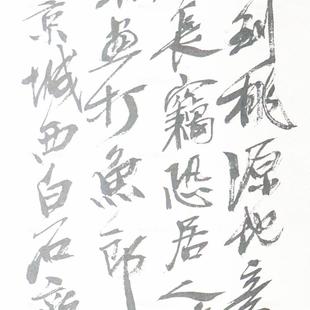 到桃源地
長竊恐居人
画打魚郎
京城西白石